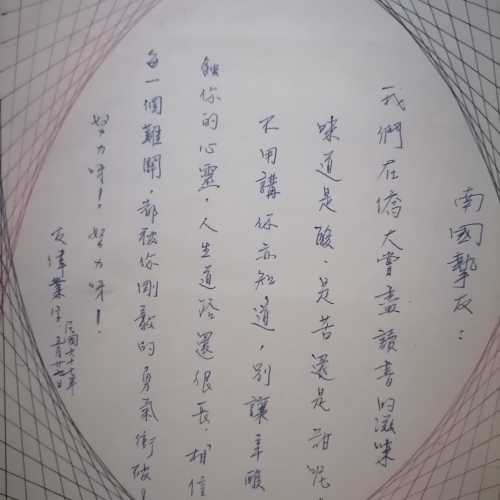 南國摯友：
我們在僑大嘗盡讀書的滋味
味道是酸、是苦還是甜呢
不用講你亦知道，別讓辛酸
蝕你的心靈，人生道路還很長，相信
每一個難關，都被你剛毅的勇氣衝破！
努力呀！努力呀！
友偉業
民國六十七年
五月廿九日